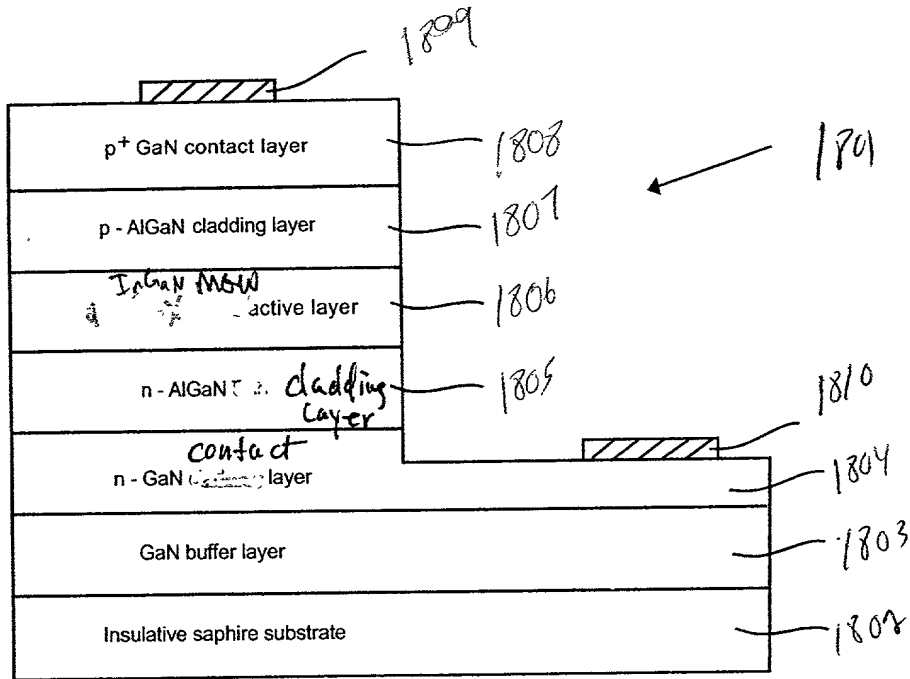 1809
p+ GaN contact layer
1808
1801
p - AlGaN cladding layer
1807
InGaN MQW
active layer
1806
n - AlGaN cladding
layer
1805
1810
contact
n - GaN layer
1804
GaN buffer layer
1803
Insulative saphire substrate
1802